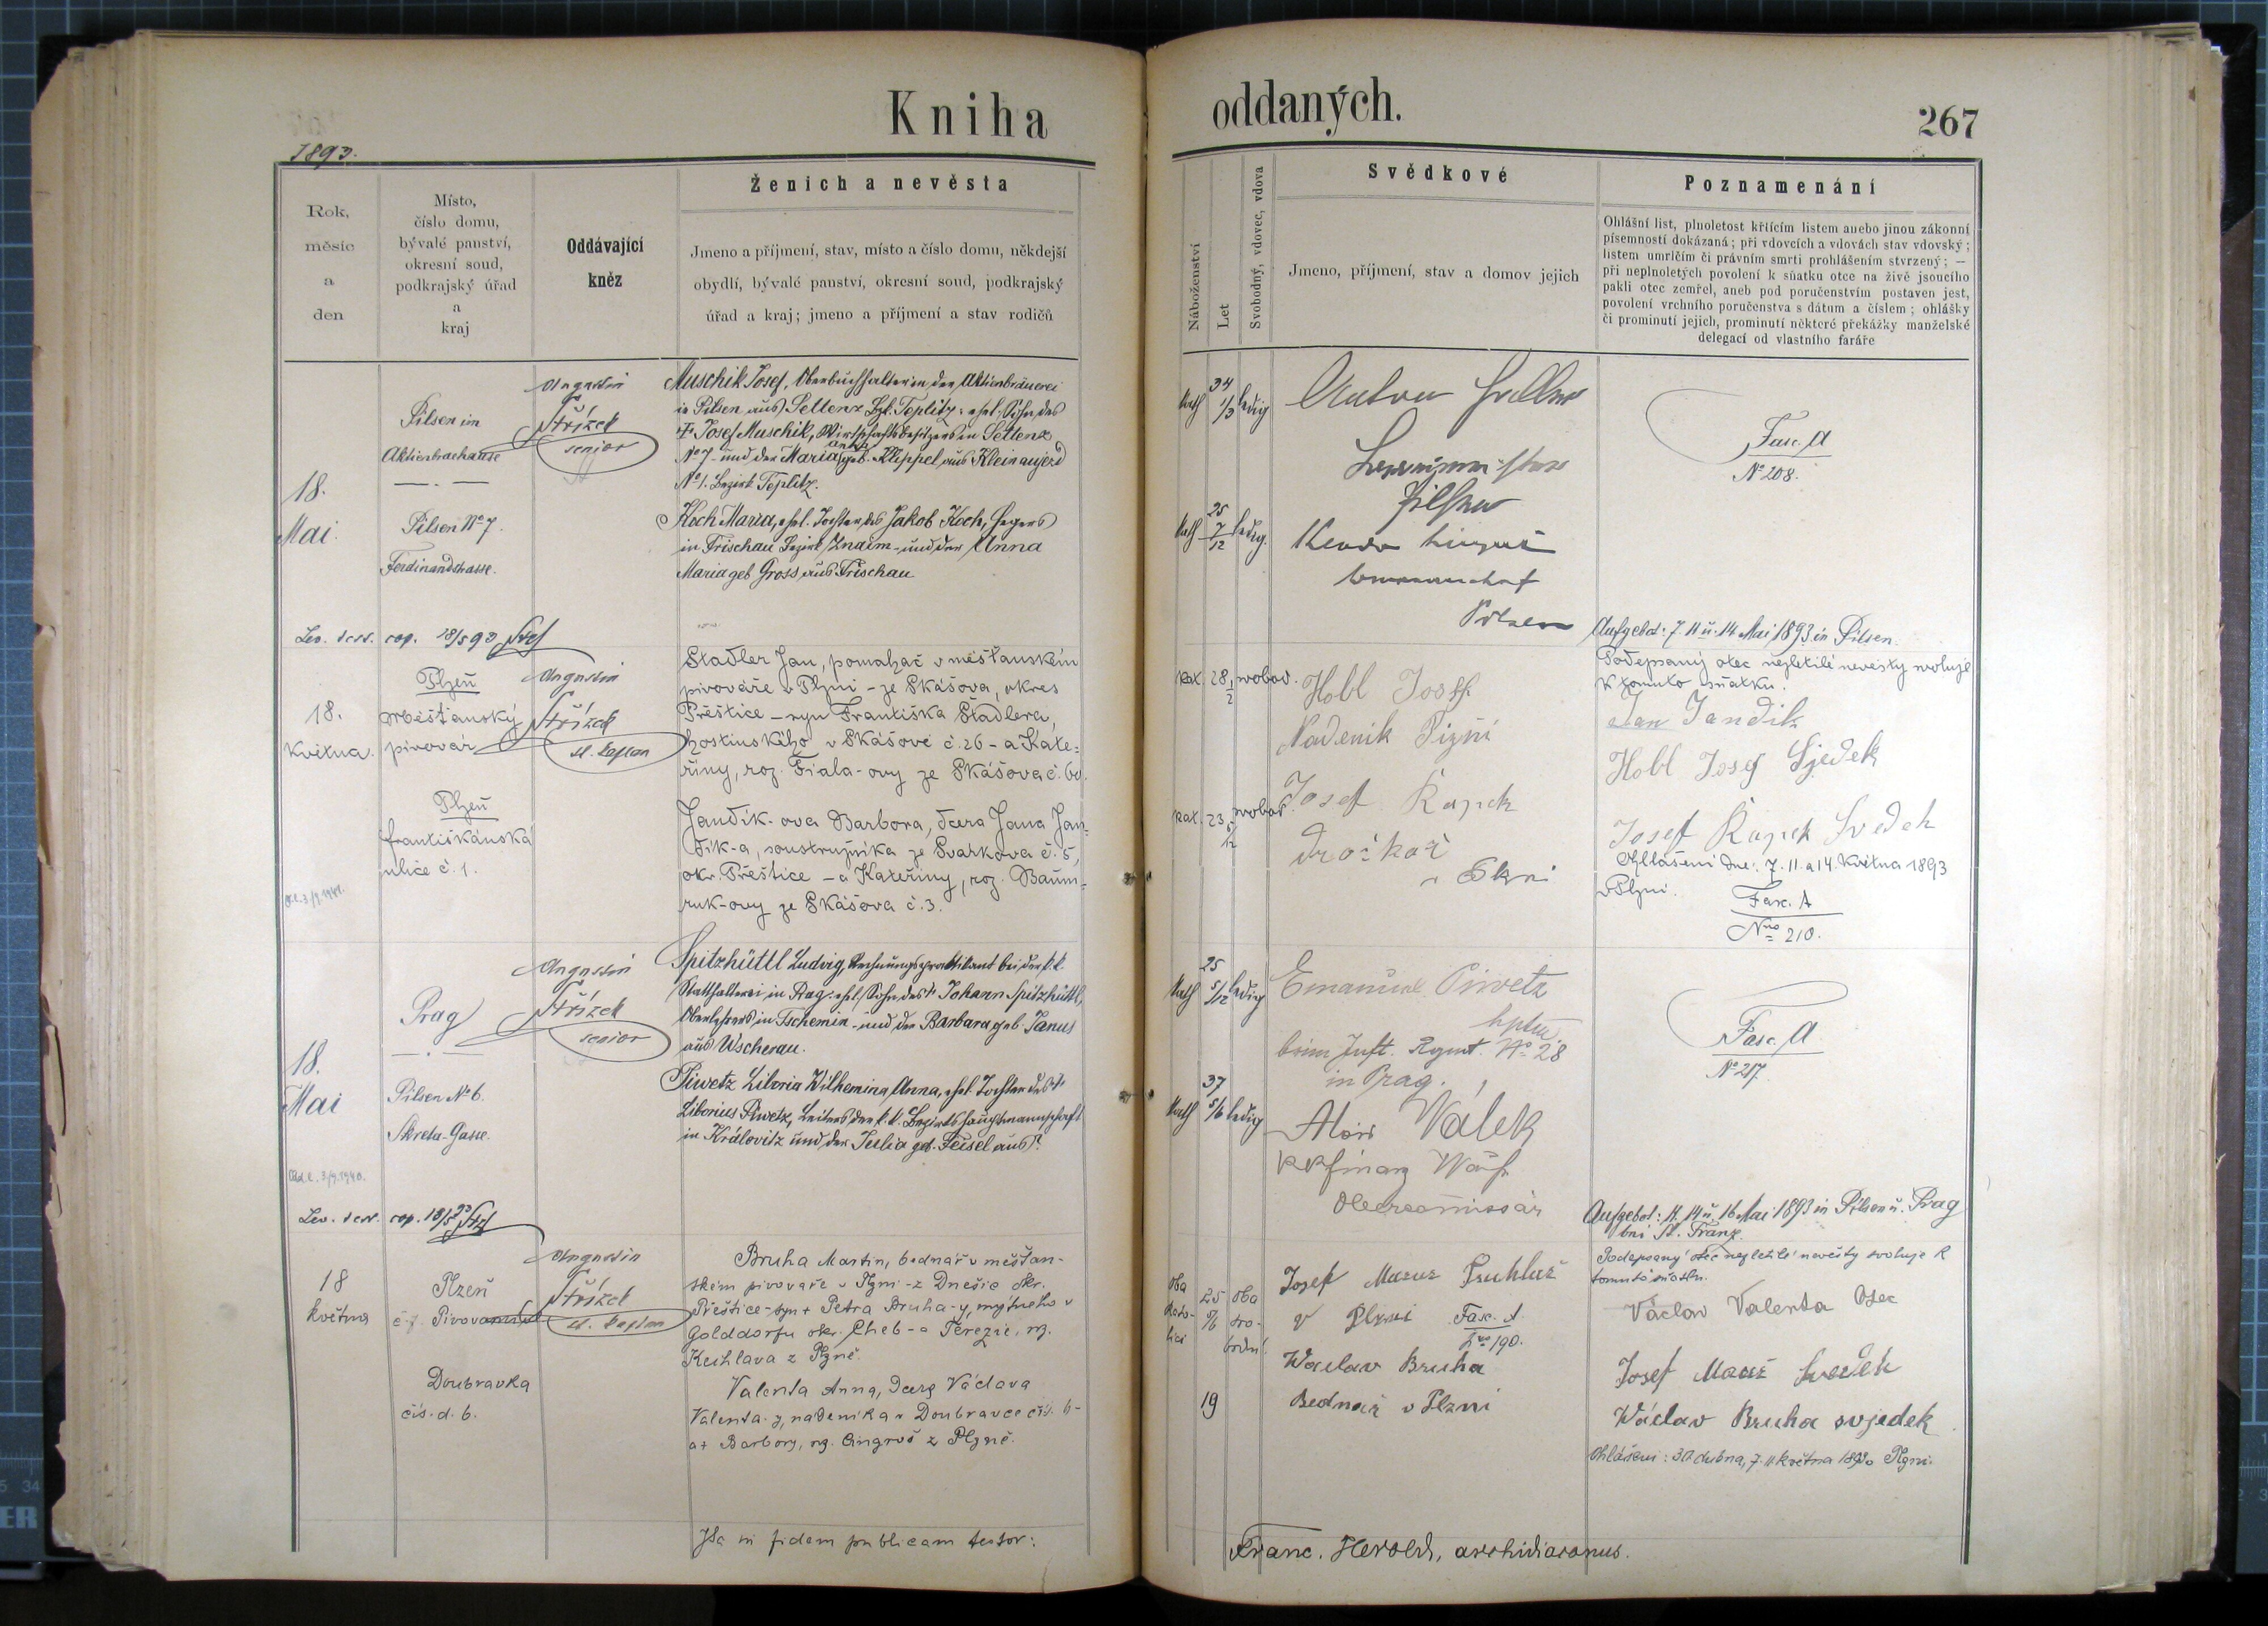 Kniha
oddaných.
267
1893.
Rok,
měsíc
a
den
Místo,
číslo domu,
bývalé panství,
okresní soud,
podkrajský úřad
a
kraj
Oddávající
kněz
Ženich a nevěsta
Jmeno a příjmení, stav, místo a číslo domu, někdejší
obydlí, bývalé panství, okresní soud, podkrajský
úřad a kraj; jmeno a příjmení a stav rodičů
Náboženství
Let
Svobodný, vdovec, vdova
Svědkové
Jmeno, příjmení, stav a domov jejich
Poznamenání
Ohlášní list, plnoletost křticím listem anebo jinou zákonní
písemností dokázaná; při vdovcích a vdovách stav vdovský;
listem umrlčím či právním smrti prohlášením stvrzený; —
při neplnoletých povolení k sňatku otce na živě jsoucího
pakli otec zemřel, aneb pod poručenstvím postaven jest,
povolení vrchního poručenstva s dátum a číslem; ohlášky
či prominutí jejich, prominutí některé překážky manželské
delegací od vlastního faráře
18.
Mai.
Pilsen im
Aktienbrauhause
Pilsen No 7.
Ferdinandstrasse.
Augustin
Střízek
senior
Muschik Josef, Oberbuchhalter in der Aktienbrauerei
in Pilsen aus Settenz Bzk. Teplitz: ehel. Sohn des
† Josef Muschik, Wirtschaftsbesitzers in Settenz
No 7 - und der Maria Anna geb. Kleppel aus Kleinaujezd
No 1. Bezirk Teplitz.
Koch Maria, ehel. Tochter des Jakob Koch, Hegers
in Frischau Bezirk Znaim - und der Anna
Maria geb Gross aus Frischau
Kath 34 1/3 ledig
Kath 25 7/12 ledig.
Anton
Pilsen
Pilsen
Fasc. A
No 208.
Aufgebot: 7. 11 u. 14 Mai 1893 in Pilsen.
Lev. cop. 18/5 93
18.
května.
Plzeň
Měšťanský
pivovár
Plzeň
františkánská
ulice č. 1.
Augustin
Střízek
kaplan
Stadler Jan, pomahač v měšťanském
pivováře v Plzni - ze Skášova, okres
Přeštice - syn Františka Stadlera,
hostinského v Skášově č. 26 - a Kate-
řiny, roz. Fiala-ovy ze Skášova č. 60.
Jandík-ova Barbora, dcera Jana Jan-
dík-a, soustružníka ze Svarkova č. 5,
okr. Přeštice - a Kateřiny, roz. Baum-
ruk-ovy ze Skášova č. 3.
kat. 28 1/2 svobod.
kat. 23 5/12 svobod.
Hobl Josef
Nadeník Plzni
Josef
Drožkař
Podepsaný otec nezletilé nevěsty svoluje
k tomuto sňatku.
Jan Jandík
Hobl Josef Sjedek
Josef Svedek
Ohlášení dne: 7. 11. a 14. května 1893
v Plzni.
Fasc. A
Nro 210.
18.
Mai
Prag
Pilsen No 6.
Skreta-Gasse.
Augustin
Střízek
senior
Spitzhüttl Ludwig, Rechnungspraktikant bei der k. k.
Statthalterei in Prag: ehel. Sohn des † Johann Spitzhüttl,
Oberlehrers in Tschemin - und der Barbara geb Janus
aus Wscherau.
Piwetz Liboria Wilhemina Anna, ehel. Tochter des †
Liborius Piwetz, Leiters der k. k. Bezirkshauptmannschaft
in Královitz und der Julia geb. Feisel aus ?
Kath 25 5/12 ledig
Kath 37 5/6 ledig
Emanuel Piwetz
hptm.
beim Inft. Regmt. No 28
in Prag.
Alois Válek
KK finanz
Obercomissär
Fasc. A
No 217.
Aufgebot: 11. 14 u. 16 Mai 1893 in Pilsen u. Prag
bei St. Franz.
Lev. cop. 18/5 93
18
května
Plzeň
č. 7. Pivovarní
Doubravka
čís. d. 6.
Augustin
Střízek
kaplan
Bruha Martin, bednář v měšťan-
ském pivovaře v Plzni - z Dnešic okr.
Přeštice - syn † Petra Bruha-y, mýtného v
Golddorfu okr. Cheb - a Terezie, roz.
Keihlava z Plzně.
Valenta Anna, dcera Václava
Valenta-y, nádeníka v Doubravce čís. 6 -
a † Barbory, roz. Cingroš z Plzně.
Oba
kato-
líci
25 5/6
19
oba
svo-
bodní
Josef
v Plzni Fasc. A
Nro 190.
Waclav Bruha
Bednář v Plzni
Podepsaný otec nezletilé nevěsty svoluje k
tomuto sňatku.
Václav Valenta Otec
Josef Svedek
Wáclav Bruha svjedek
Ohlášení: 30 dubna, 7. 11 května 1893 v Plzni.
Ita in fidem publicam testor:
Franc. Herold, archidiaconus.